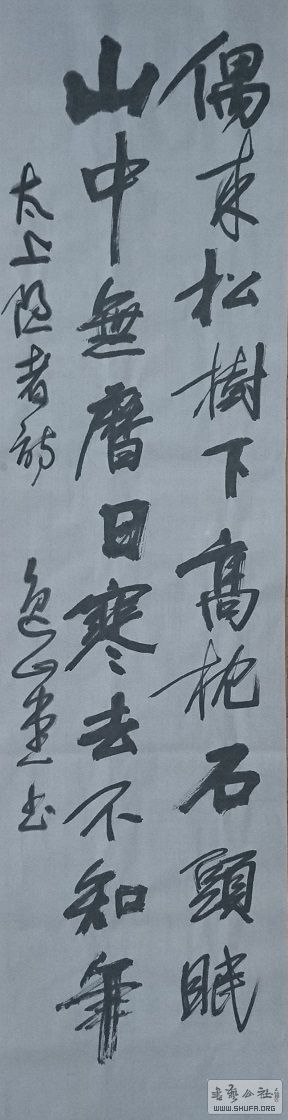 偶来松樹下高枕石頭眠
山中無曆日寒去不知年
太上隐者詩
逸山书
书艺公社
WWW.SHUFA.ORG